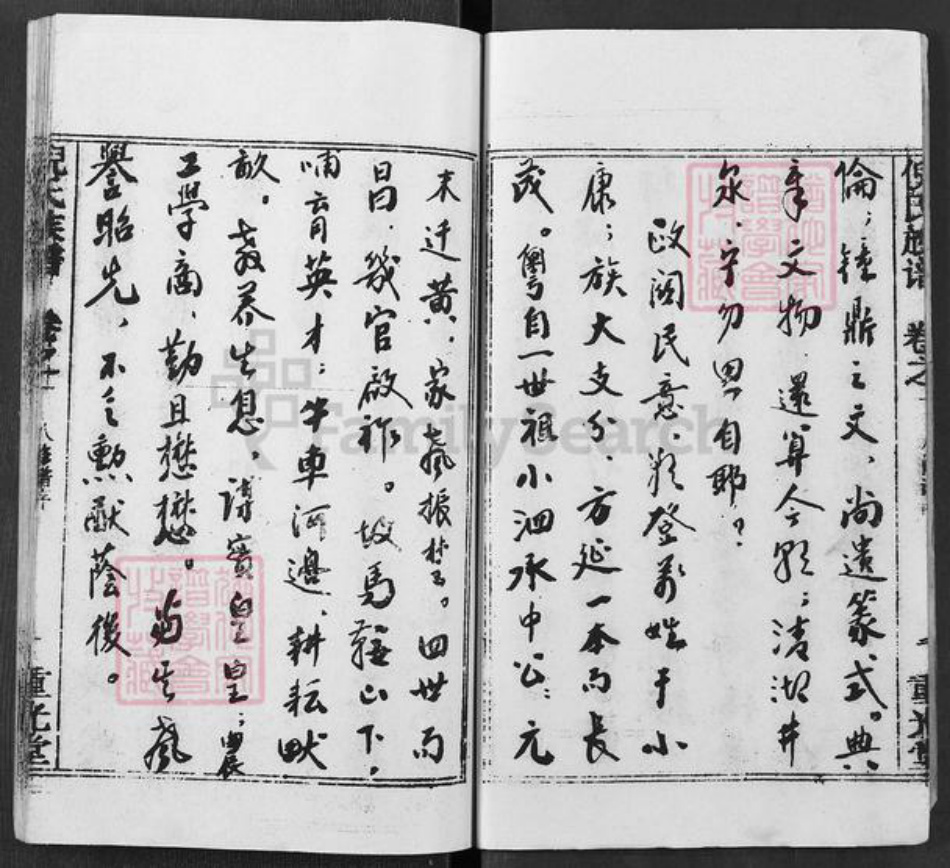 倪氏族谱 卷之
倫；鐘鼎之文，尚遺篆式。典
章文物，還算今聚；清湖井
泉，寧勿思自耶？
政闊民意，方登萬姓于小
康；族大支分，方延一本而長
茂。粵自一世祖小泗承中公：元
末迁黄，家聲振楚。四世而
昌，幾官啟祚。坡馬鞍山下，
哺育英才；牛車河邊，耕耘畎
畝。教养生息，詩賓皇皇；農
工學商，勤且懋懋。
譽昭先，不乏勲猷蔭後。
倪氏族譜 卷之
重光堂
FamilySearch